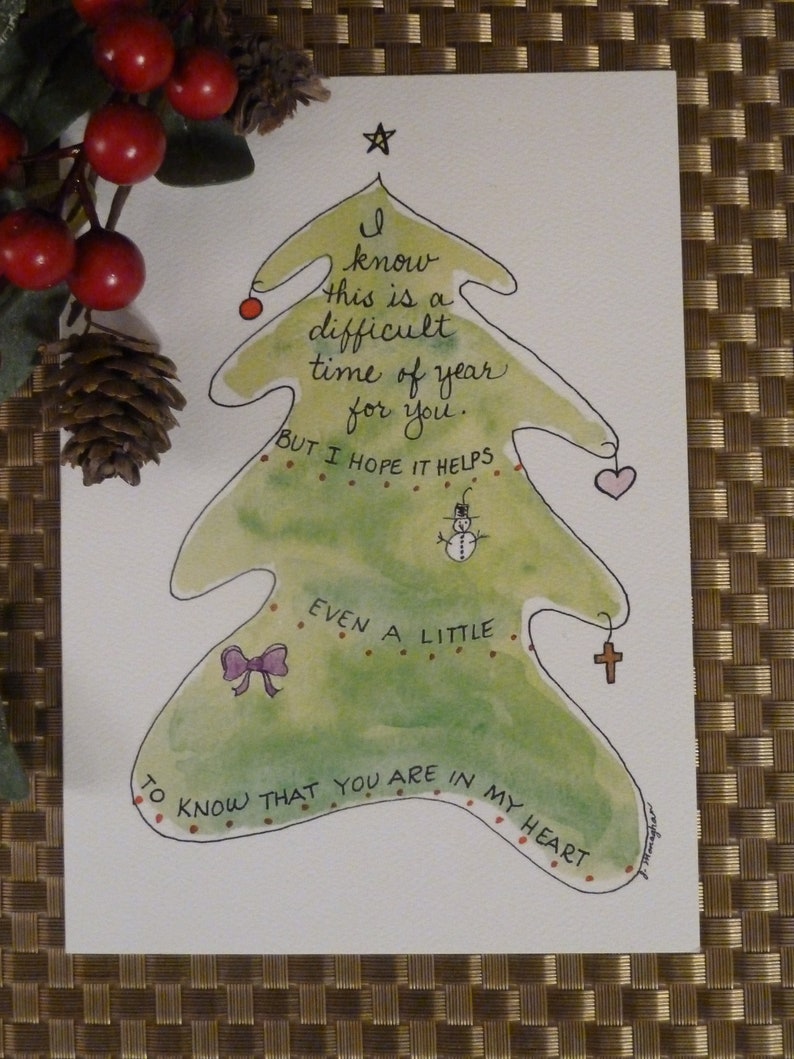 I
know
this is a
difficult
time of year
for you.
BUT I HOPE IT HELPS
EVEN A LITTLE
TO KNOW THAT YOU ARE IN MY HEART
J. Monaghan